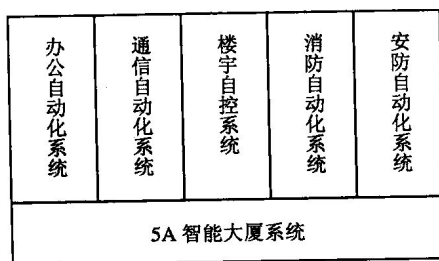 办公自动化系统
通信自动化系统
楼宇自控系统
消防自动化系统
安防自动化系统
5A 智能大厦系统